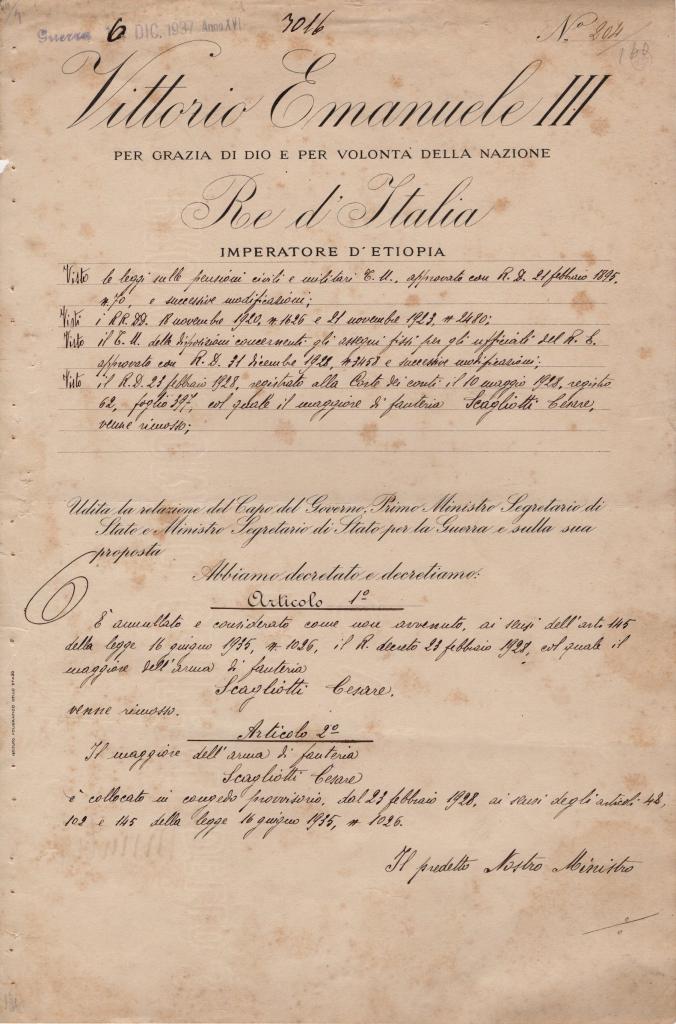 Guerra 6 DIC. 1937 Anno XVI
3016
N.º 204
Vittorio Emanuele III
PER GRAZIA DI DIO E PER VOLONTÀ DELLA NAZIONE
Re d'Italia
IMPERATORE D'ETIOPIA
Visto le leggi sulle pensioni civili e militari T. U., approvato con R. D. 21 febbraio 1895,
n. 70, e successive modificazioni;
Visti i RR. DD. 18 novembre 1920, n. 1626 e 21 novembre 1923, n. 2480;
Visto il T. U. delle disposizioni concernenti gli assegni fissi per gli ufficiali del R. E.
approvato con R. D. 31 dicembre 1928, n. 3458 e successive modificazioni;
Visto il R. D. 23 febbraio 1928, registrato alla Corte dei conti il 10 maggio 1928, registro
62, foglio 397, col quale il maggiore di fanteria Scagliotti Cesare,
venne rimosso;
Udita la relazione del Capo del Governo, Primo Ministro Segretario di
Stato e Ministro Segretario di Stato per la Guerra e sulla sua
proposta
Abbiamo decretato e decretiamo:
Articolo 1º
È annullato e considerato come non avvenuto, ai sensi dell'art. 145
della legge 16 giugno 1935, n. 1026, il R. decreto 23 febbraio 1928, col quale il
maggiore dell'arma di fanteria
Scagliotti Cesare,
venne rimosso.
Articolo 2º
Il maggiore dell'arma di fanteria
Scagliotti Cesare
è collocato in congedo provvisorio, dal 23 febbraio 1928, ai sensi degli articoli 48,
102 e 145 della legge 16 giugno 1935, n. 1026.
Il predetto Nostro Ministro